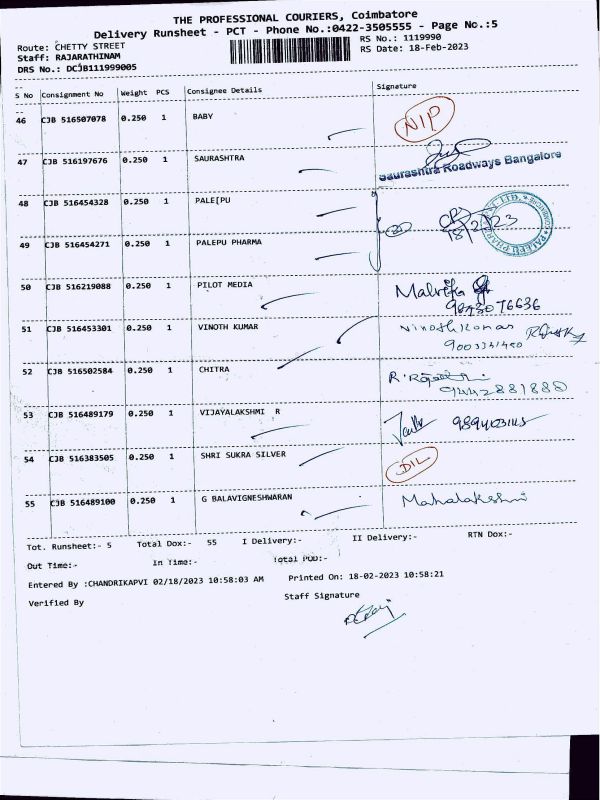 THE PROFESSIONAL COURIERS, Coimbatore
Delivery Runsheet - PCT - Phone No.:0422-3505555 - Page No.:5
Route: CHETTY STREET RS No.: 1119990
Staff: RAJARATHINAM RS Date: 18-Feb-2023
DRS No.: DCJB111999005
S No Consignment No Weight PCS Consignee Details Signature
46 CJB 516507078 0.250 1 BABY NIP
47 CJB 516197676 0.250 1 SAURASHTRA Saurashtra Roadways Bangalore
48 CJB 516454328 0.250 1 PALE[PU 18/2/23
49 CJB 516454271 0.250 1 PALEPU PHARMA
50 CJB 516219088 0.250 1 PILOT MEDIA Malvika
76636
51 CJB 516453301 0.250 1 VINOTH KUMAR Vinothkumar
52 CJB 516502584 0.250 1 CHITRA
9442881880
53 CJB 516489179 0.250 1 VIJAYALAKSHMI R
54 CJB 516383505 0.250 1 SHRI SUKRA SILVER D/L
55 CJB 516489100 0.250 1 G BALAVIGNESHWARAN Mahalakshmi
Tot. Runsheet:- 5 Total Dox:- 55 I Delivery:- II Delivery:- RTN Dox:-
Out Time:- In Time:- Total POD:-
Entered By :CHANDRIKAPVI 02/18/2023 10:58:03 AM Printed On: 18-02-2023 10:58:21
Verified By Staff Signature